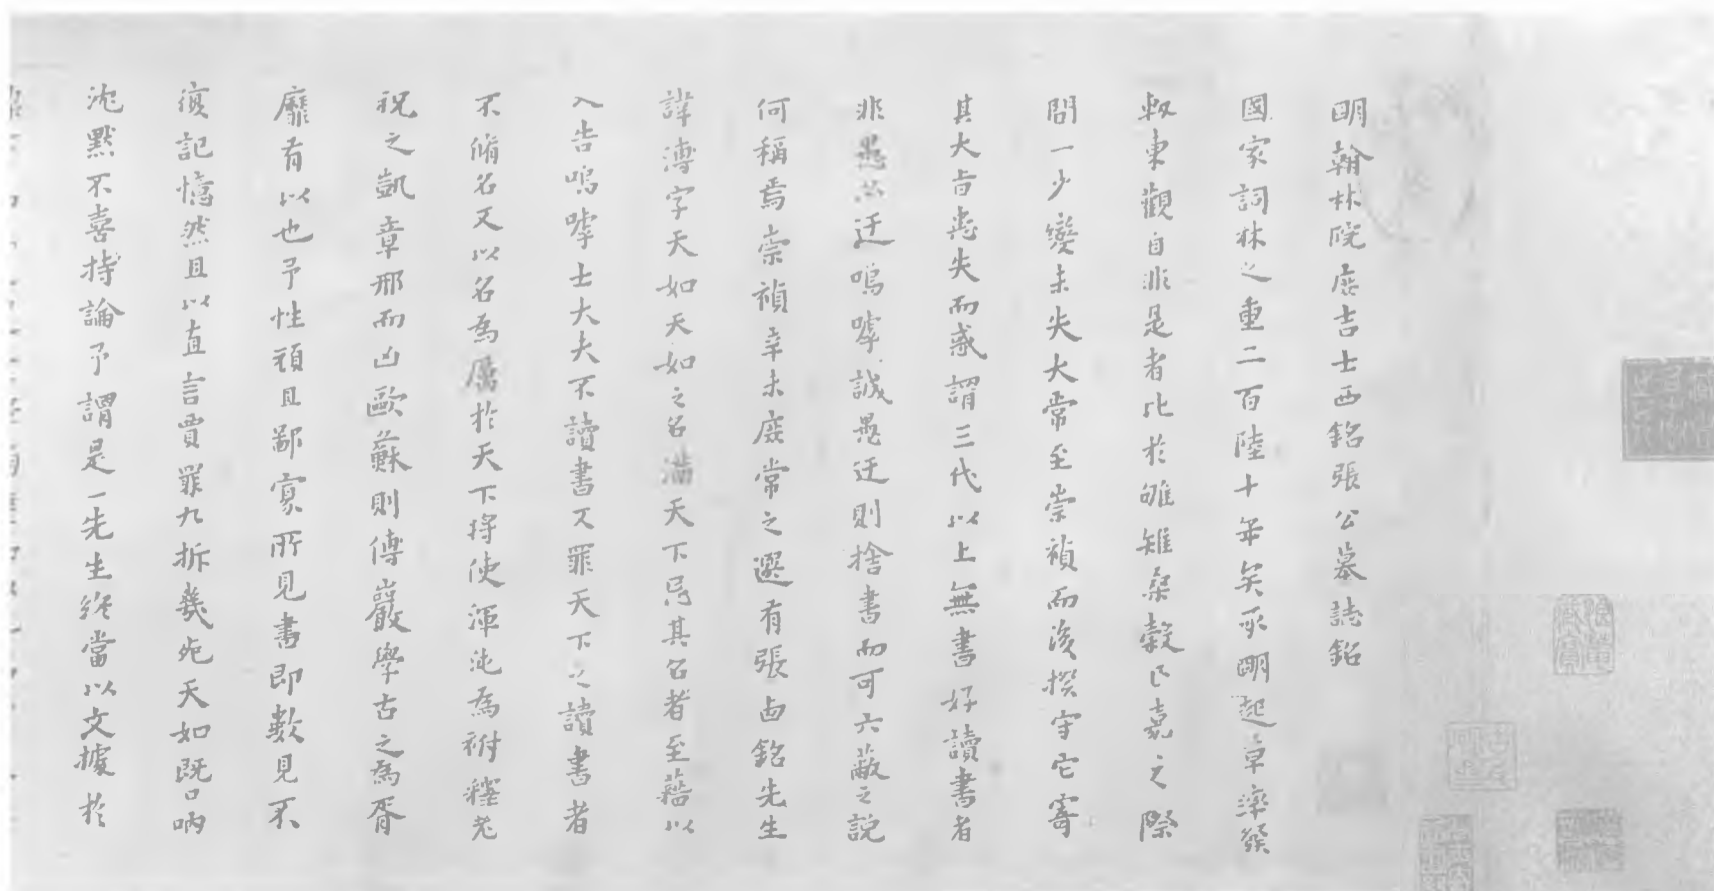 明翰林院庶吉士西銘張公墓誌銘
國家詞林之重二百陸十年矣承明起草深嚴
東觀自非是者比於雊雉桑穀已嘉之際
問一少變未失大常至崇禎而後揆守它寄
其大旨患失而惑謂三代以上無書好讀書者
非愚必迂嗚嘑誠愚迂則捨書而可六蔽之說
何稱焉崇禎辛未庶常之選有張西銘先生
諱溥字天如天如之名滿天下忌其名者至藉以
入告嗚嘑士大夫不讀書又罪天下之讀書者
不脩名又以名為厲於天下將使渾沌為祔
祝之凱章邢而凶歐蘇則傅巖學古之為胥
靡有以也予性頑且鄙寡所見書即數見不
復記憶然且以直言賈罪九折幾死天如既口吶
沈默不喜持論予謂是一先生終當以文據於